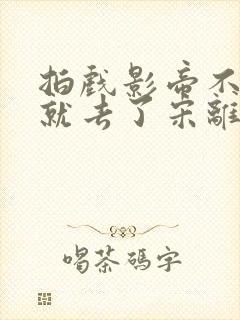 拍戲影帝不
就去了宋離
喝茶碼字